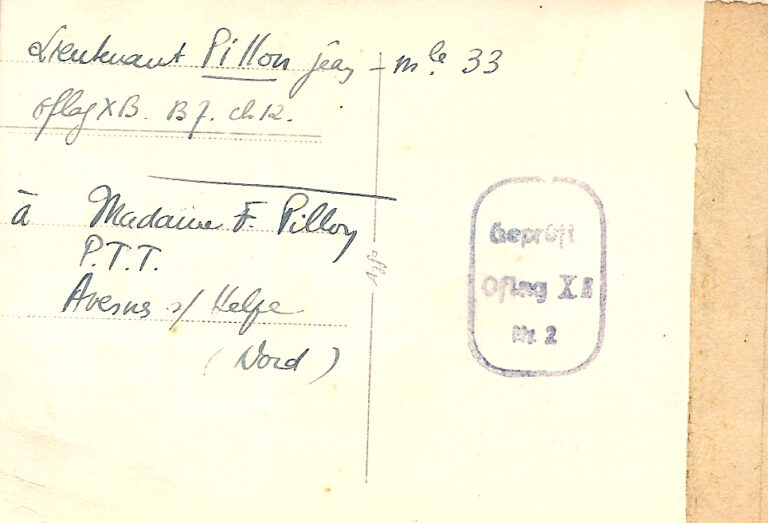 Lieutenant Pillon Jean - mle 33
Oflag XB. B7. ch 12.
à Madame F. Pillon
P.T.T.
Avesnes s/ Helpe
(Nord)
Agfa
Geprüft
Oflag X B
Nr. 2